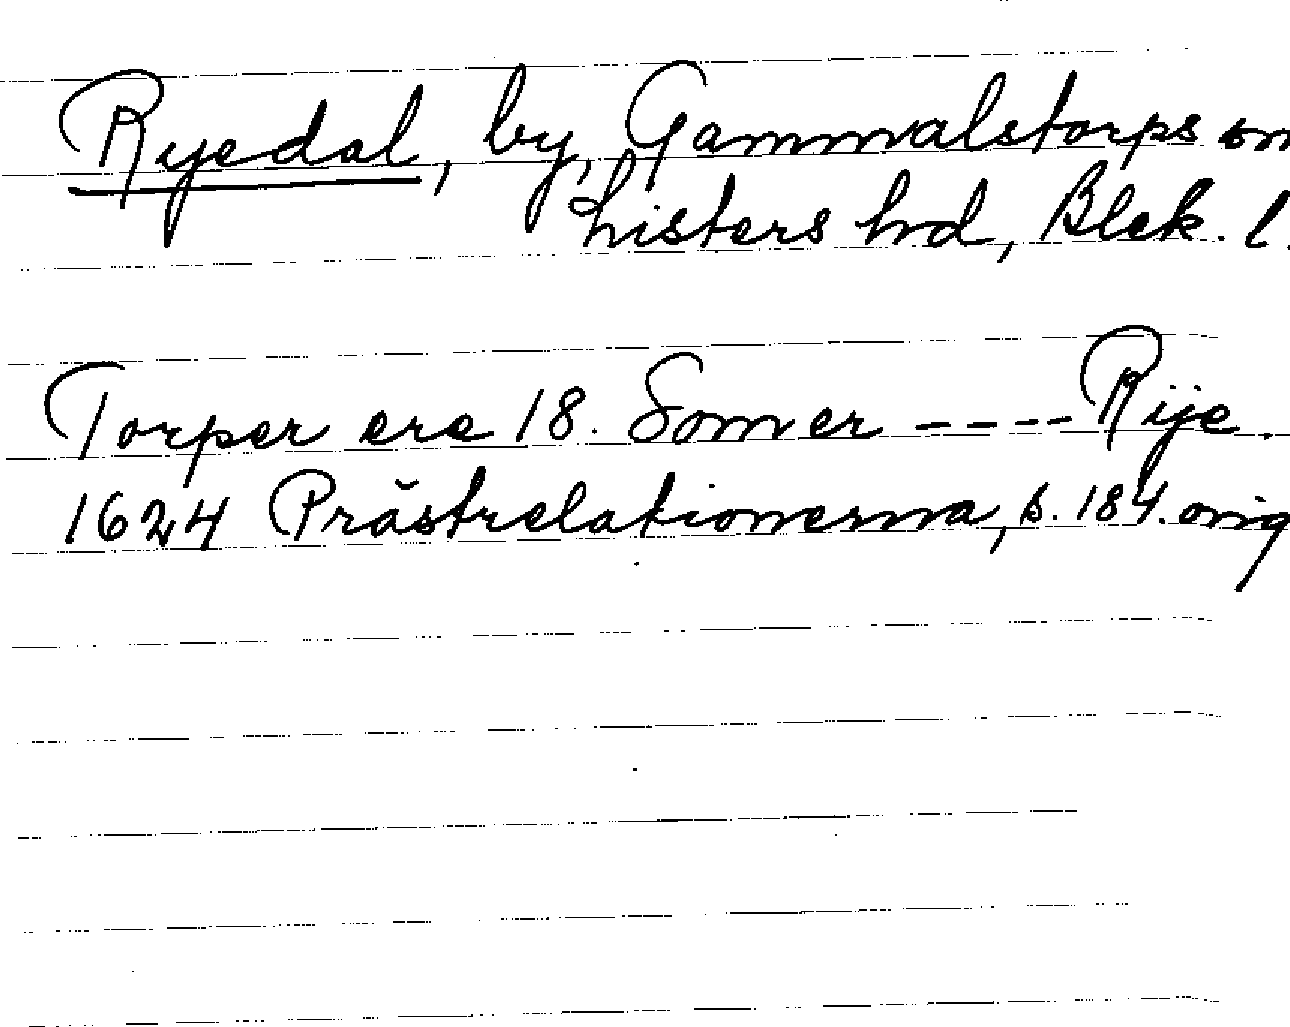 Ryedal, by, Gammalstorps sn
Listers hd, Blek. l.
Torper ere 18. Somer ---- Rije.
1624 Prästrelationerna, s. 184. orig